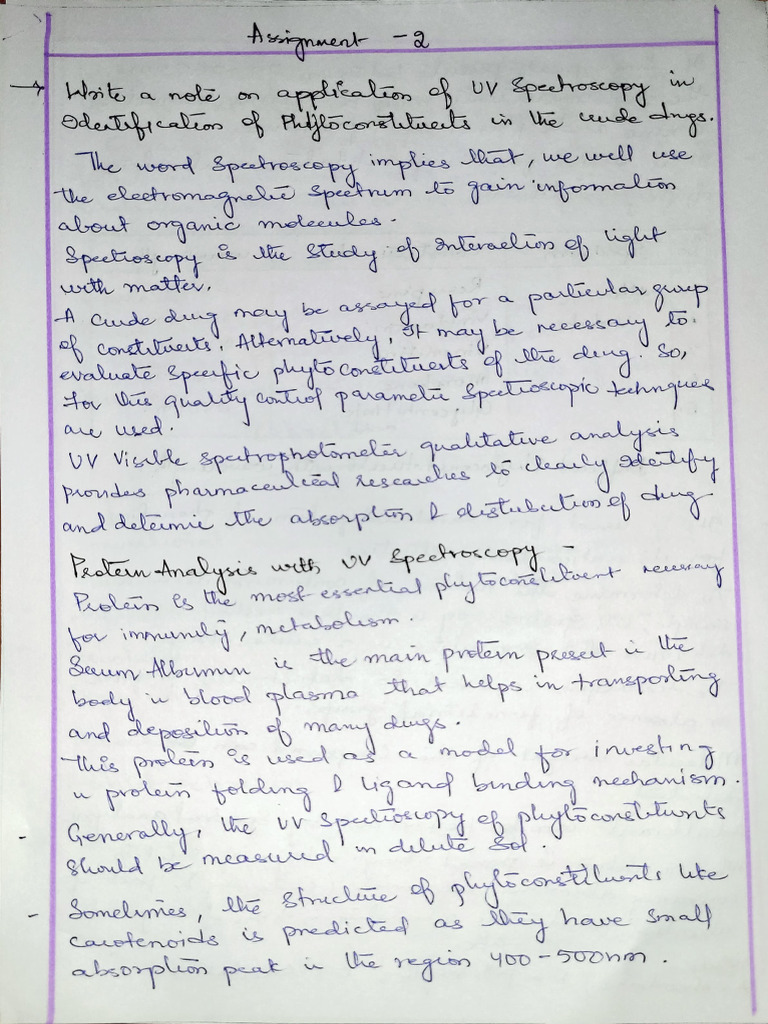 Assignment - 2
→ Write a note on application of UV Spectroscopy in
Identification of Phytoconstituents in the crude drugs.
The word Spectroscopy implies that, we will use
the electromagnetic Spectrum to gain information
about organic molecules.
Spectroscopy is the Study of interaction of light
with matter.
A crude drug may be assayed for a particular group
of constituents. Alternatively, It may be necessary to
evaluate specific phytoconstituents of the drug. So,
for this quality control parameter Spectroscopic techniques
are used.
UV Visible spectrophotometer qualitative analysis
provides pharmaceutical researches to clearly identify
and determine the absorption & distribution of drug
Protein Analysis with UV Spectroscopy -
Protein is the most essential phytoconstituent necessary
for immunity, metabolism.
Serum Albumin is the main protein present in the
body in blood plasma that helps in transporting
and deposition of many drugs.
This protein is used as a model for investing
in protein folding & ligand binding mechanism.
- Generally, the UV Spectroscopy of phytoconstituents
should be measured in dilute Sol.
- Sometimes, the structure of phytoconstituents like
carotenoids is predicted as they have small
absorption peak in the region 400-500nm.